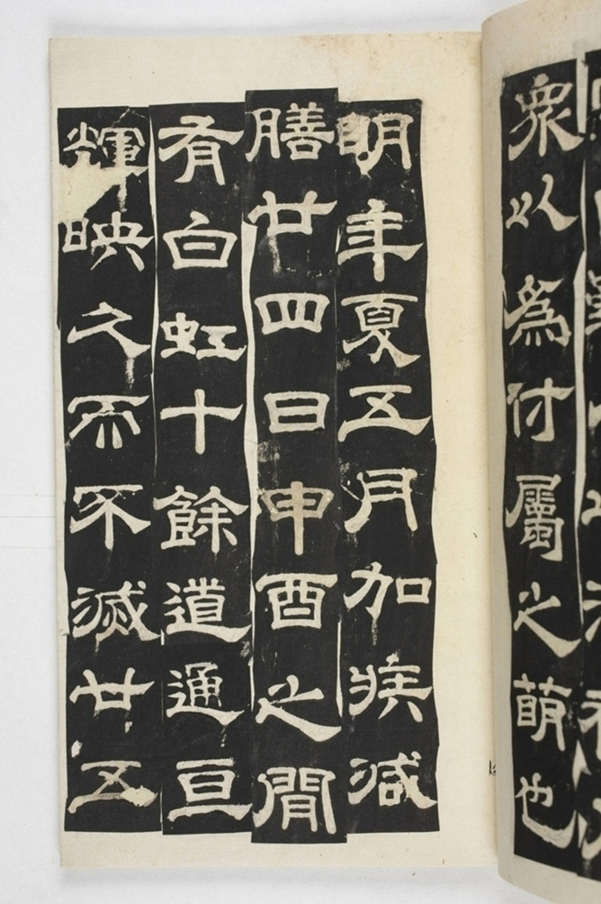 衆以爲付屬之萌也
明年夏五月加疾減
膳廿四日申酉之閒
有白虹十餘道通亘
輝映久而不滅廿五